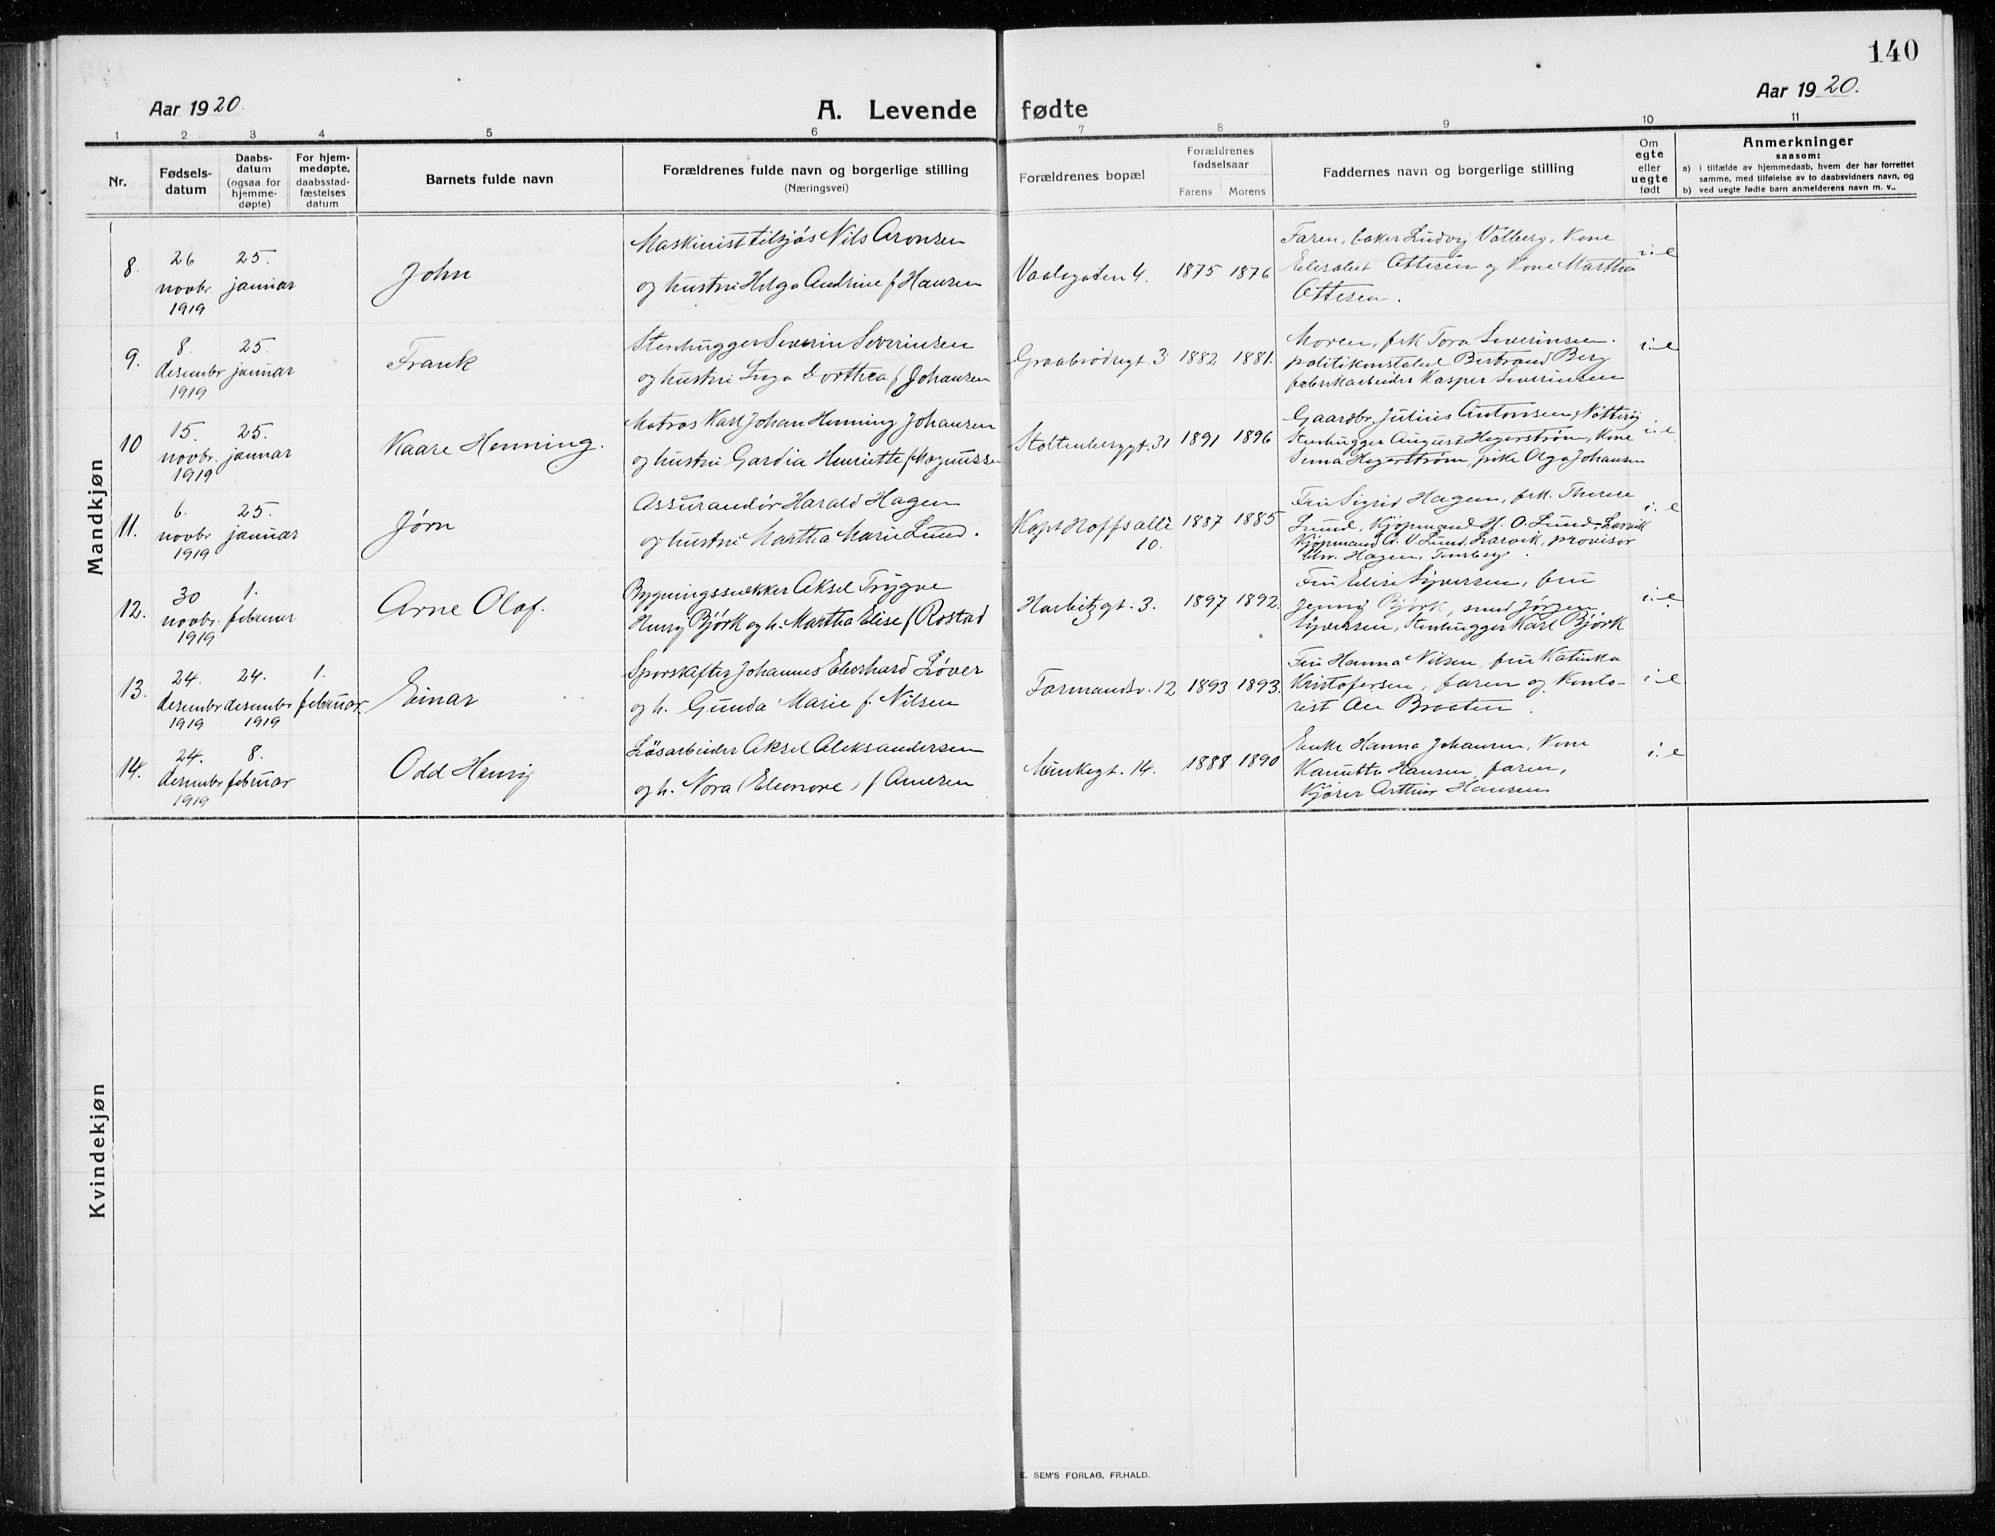 140
Aar 1920.
A. Levende fødte
Aar 1920.
1 2 3 4 5 6 7 8 9 10 11
Nr.
Fødsels-
datum
Daabs-
datum
(ogsaa for
hjemme-
døpte)
For hjem-
medøpte,
daabsstad-
fæstelses
datum
Barnets fulde navn
Forældrenes fulde navn og borgerlige stilling
(Næringsvei)
Forældrenes bopæl
Forældrenes
fødselsaar
Farens Morens
Faddernes navn og borgerlige stilling
Om
egte
eller
uegte
født
Anmerkninger
saasom:
a) i tilfælde av hjemmedaab, hvem der har forrettet
samme, med tilføielse av to daabsvidners navn, og
b) ved uegte fødte barn anmelderens navn m. v..
Mandkjøn
8.
26
novbr.
1919
25.
januar
John
Maskinist tilsjøs Nils Aronsen
og hustru Helga Andrine f Hansen
Vaalegaten 4.
1875 1876
Faren, baker Ludvig Valberg, kone
Elisabet Ottesen og kone Martha
Ottesen.
i. e
9.
8.
desember
1919
25.
januar
Frank
Stenhugger Severin Severinsen
og hustru Inga Dorthea f Johansen
Graabrødregt. 3
1882 1881.
Moren, frk Tora Severinsen.
politikonstabel Bertrand Berg
fabrikarbeider Kasper Severinsen
i. e
10
15.
novbr.
1919
25.
januar
Kaare Henning.
Matros Karl Johan Henning Johansen
og hustru Gardia Henriette f Magnussen
Stoltenberggt. 31
1891 1896
Gaardbr. Julius Antonsen, Nøtterøy
Stenhugger August Hegerstrøm, kone
Sema Hegerstrøm, pike Olga Johansen
i. e
11.
6.
novbr
1919
25.
januar
Jørn
Assurandør Harald Hagen
og hustru Martha Marie Lund.
Kapt Hoffsalle
10.
1887 1885
Fru Sigrid Hagen, frk. Therese
Lund, kjøpmand H. O. Lund, Larvik
Kjøpmand O. V. Lund, Larvik, provisor
Chr. Hagen, Tønsberg.
i. e
12.
30
novbr.
1919
1.
februar
Arne Olaf.
Bygningssnekker Aksel Trygve
Henry Bjørk og h. Martha Elise f Rostad
Harbitzgt. 3.
1897 1892.
Fru Elise Syversen, fru
Jenny Bjørk, smed Jørgen
Syversen, Stenhugger Karl Bjørk
i. e
13.
24.
desembr
1919
24.
desembr
1919
1.
februar.
Einar
Sporskifter Johannes Eberhard Løver
og h. Gunda Marie f. Nilsen
Farmandsv. 12
1893 1893.
Fru Hanna Nilsen, fru Katinka
Kristofersen, faren og konto-
rist Braaten.
i. e
14.
24.
desembr
1919
8.
februar
Odd Henry
Løsarbeider Aksel Aleksandersen
og h. Nora (Eleonore) f Arnesen
Munkegt. 14.
1888 1890
Enke Hanna Johansen, kone
Hansen, faren,
Kjører Arthur Hansen
i. e
Kvindekjøn
E. SEM'S FORLAG, FR.HALD.